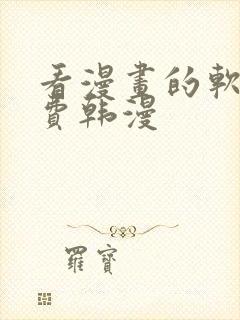 看漫畫的軟
費韩漫
羅寶